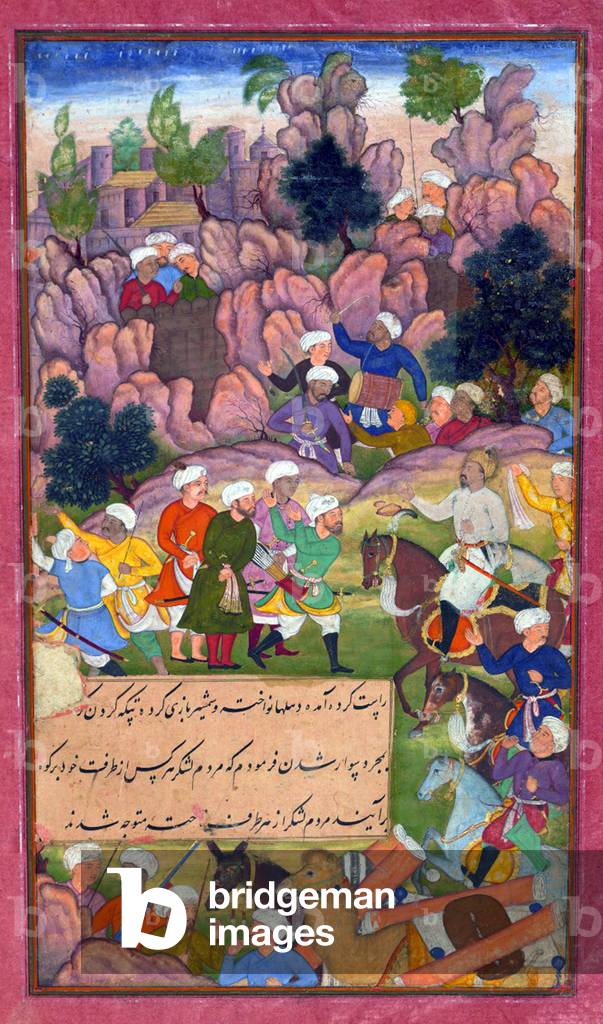 راست کرده آمده دهلها نواخته و شمشیر بازی کرده
بمجرد سوار شدن فرمودم که مردم لشکر هر کس از طرف خود بر کوه
برآیند مردم لشکر از هر طرف تاخته متوجه شدند
b bridgeman
images